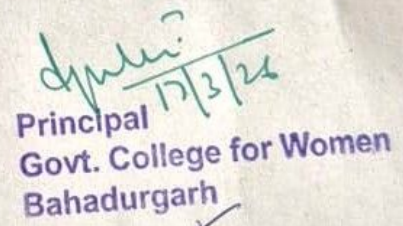 17/3/26
Principal
Govt. College for Women
Bahadurgarh